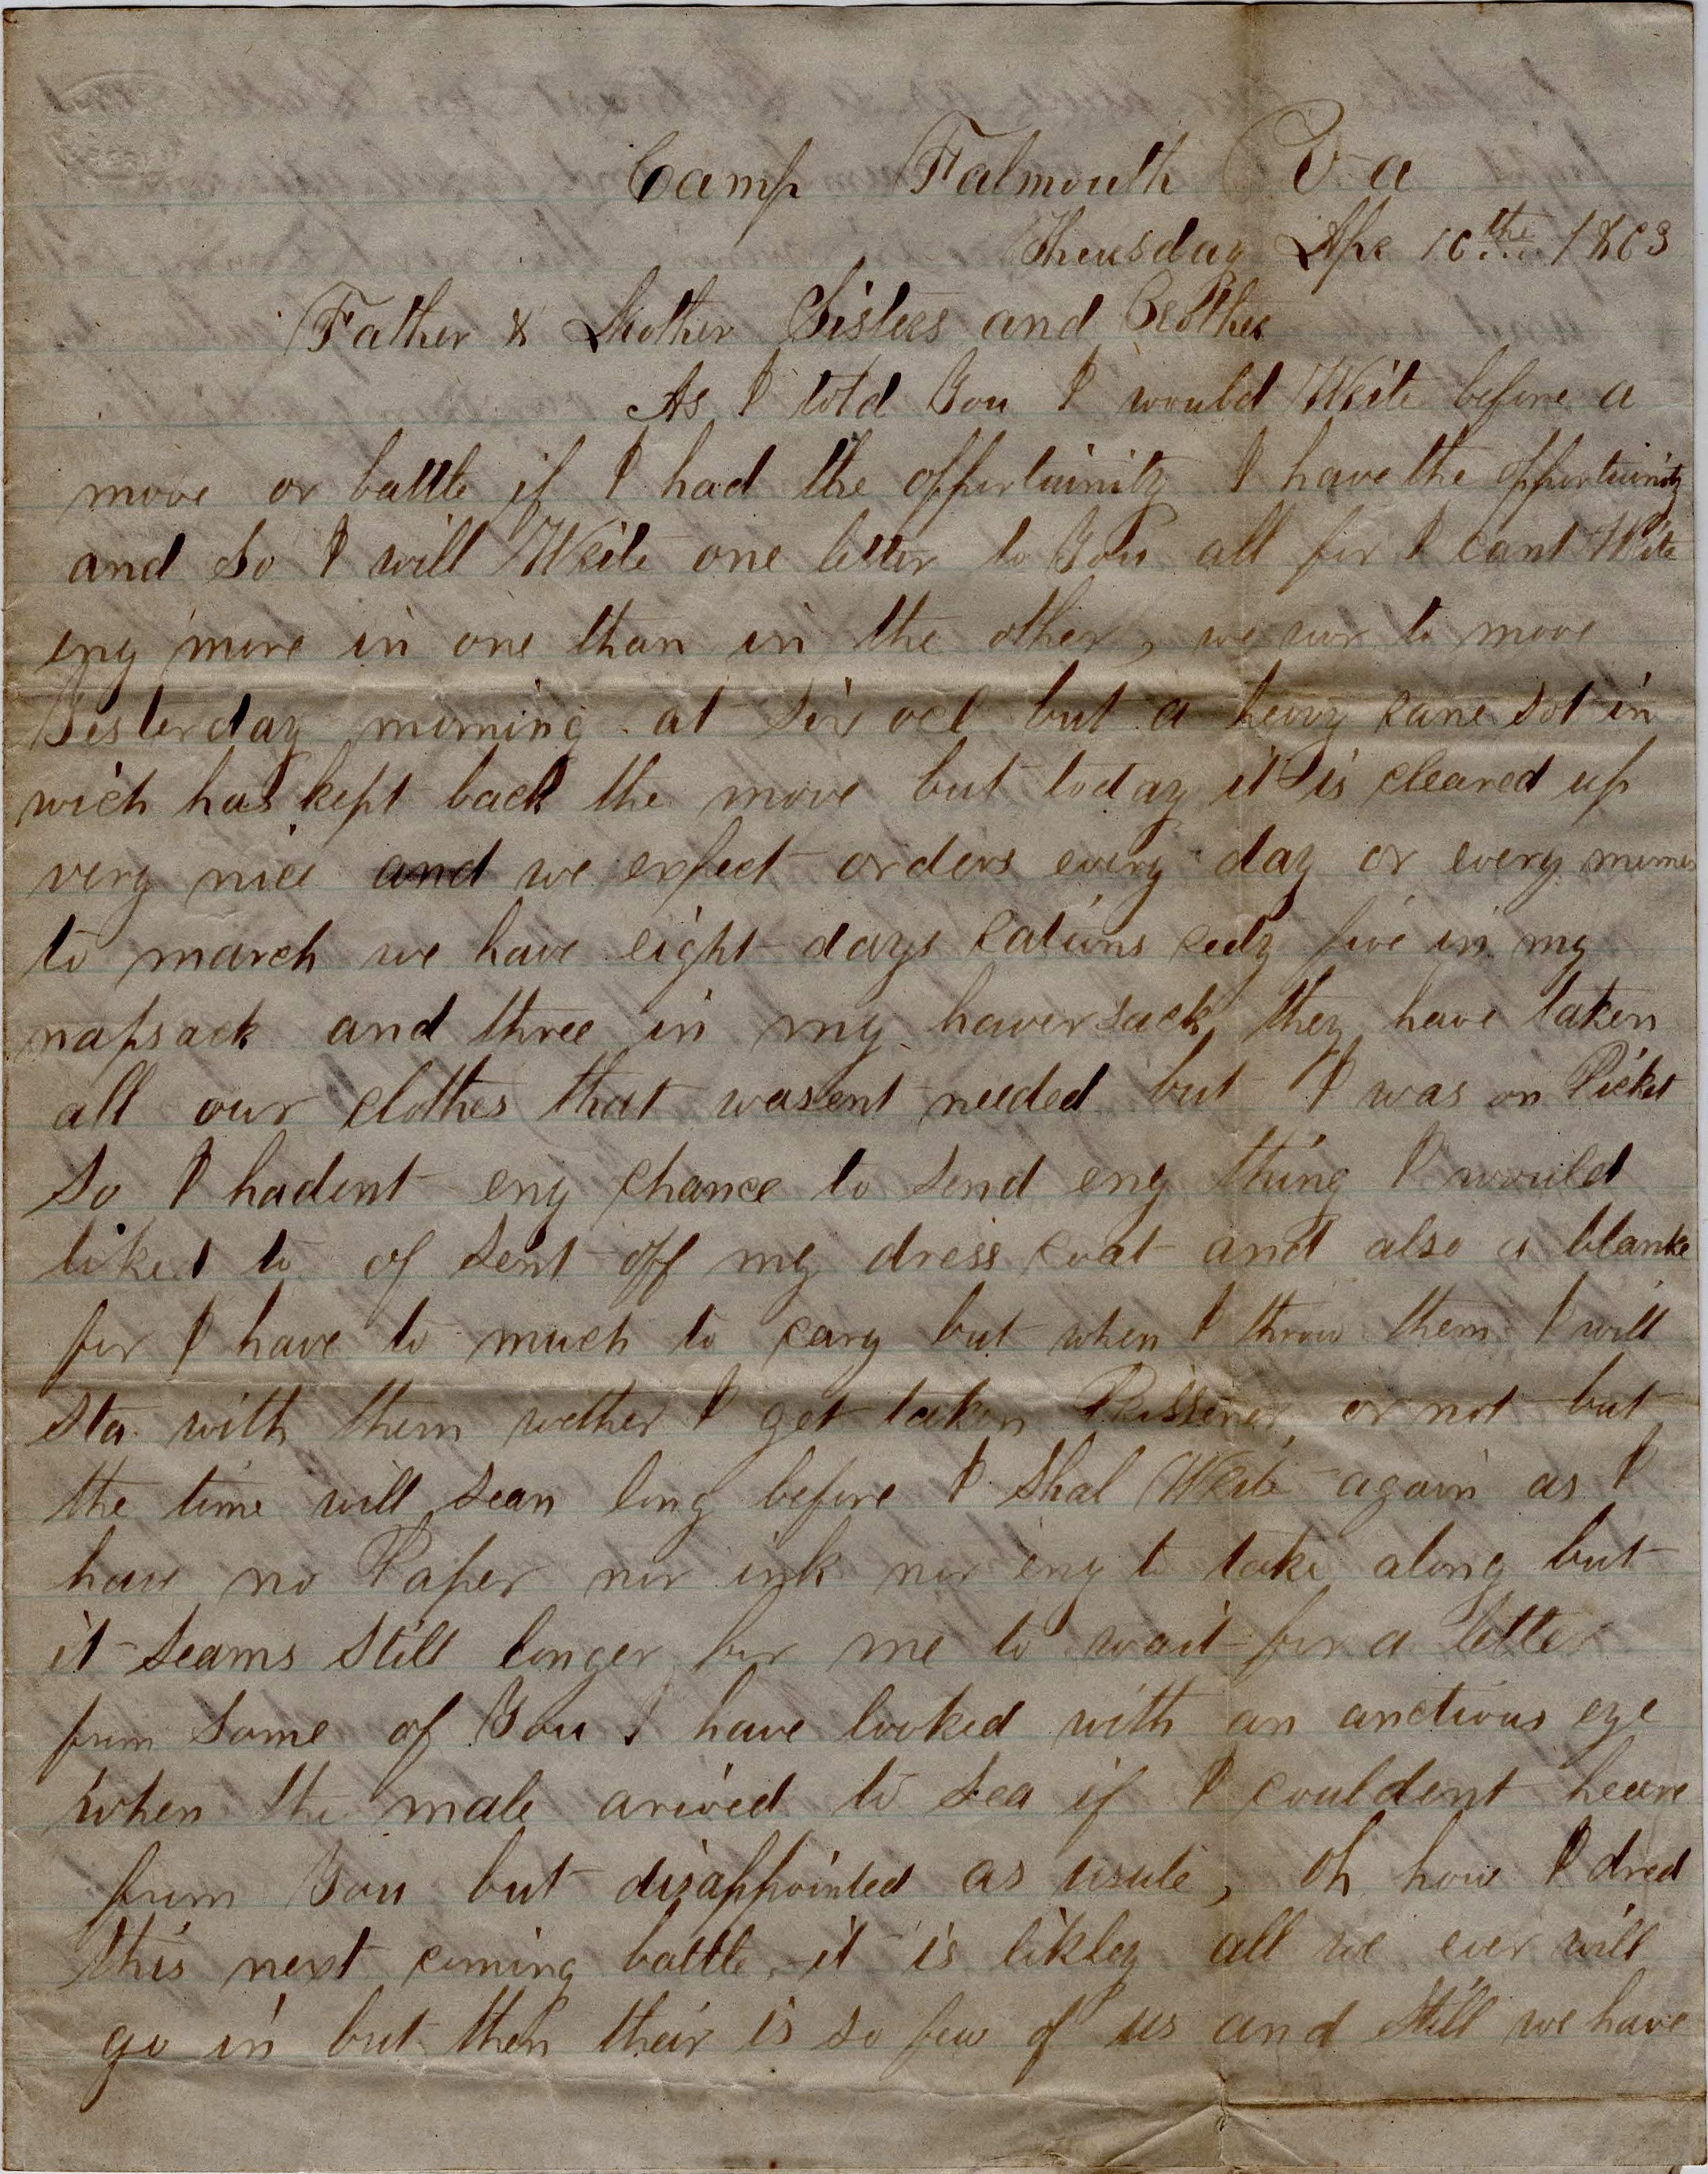 Camp Falmouth Va
Thursday Apr 16th 1863
Father & Mother Sisters and Brother
As I told You I would Write before a
move or battle if I had the oppertuinity I have the oppertuinity
and so I will Write one letter to You all for I cant Write
eny more in one than in the other, we wor to move
Yesterday morning at six ocl but a heavy rane sot in
wich has kept back the move but today it is cleared up
very nice and we expect orders every day or every
to march we have eight days rations redy five in my
napsack and three in my haversack they have taken
all our clothes that wasent needed but I was on Picket
so I hadent eny chance to send eny thing I would
liked to of sent off my dress coat and also a blanke
for I have to much to cary but when I throw them I will
sta with them wether I get taken Prissener or not but
the time will sean long before I shal Write again as I
have no Paper nor ink nor eny to take along but
it seams still longer for me to wait for a letter
frum some of You I have looked with an anctious eye
when the male arived to sea if I couldent heare
frum You but disappointed as usule, oh how I dred
this next coming battle it is likley all we ever will
go in but then their is so few of us and still we have